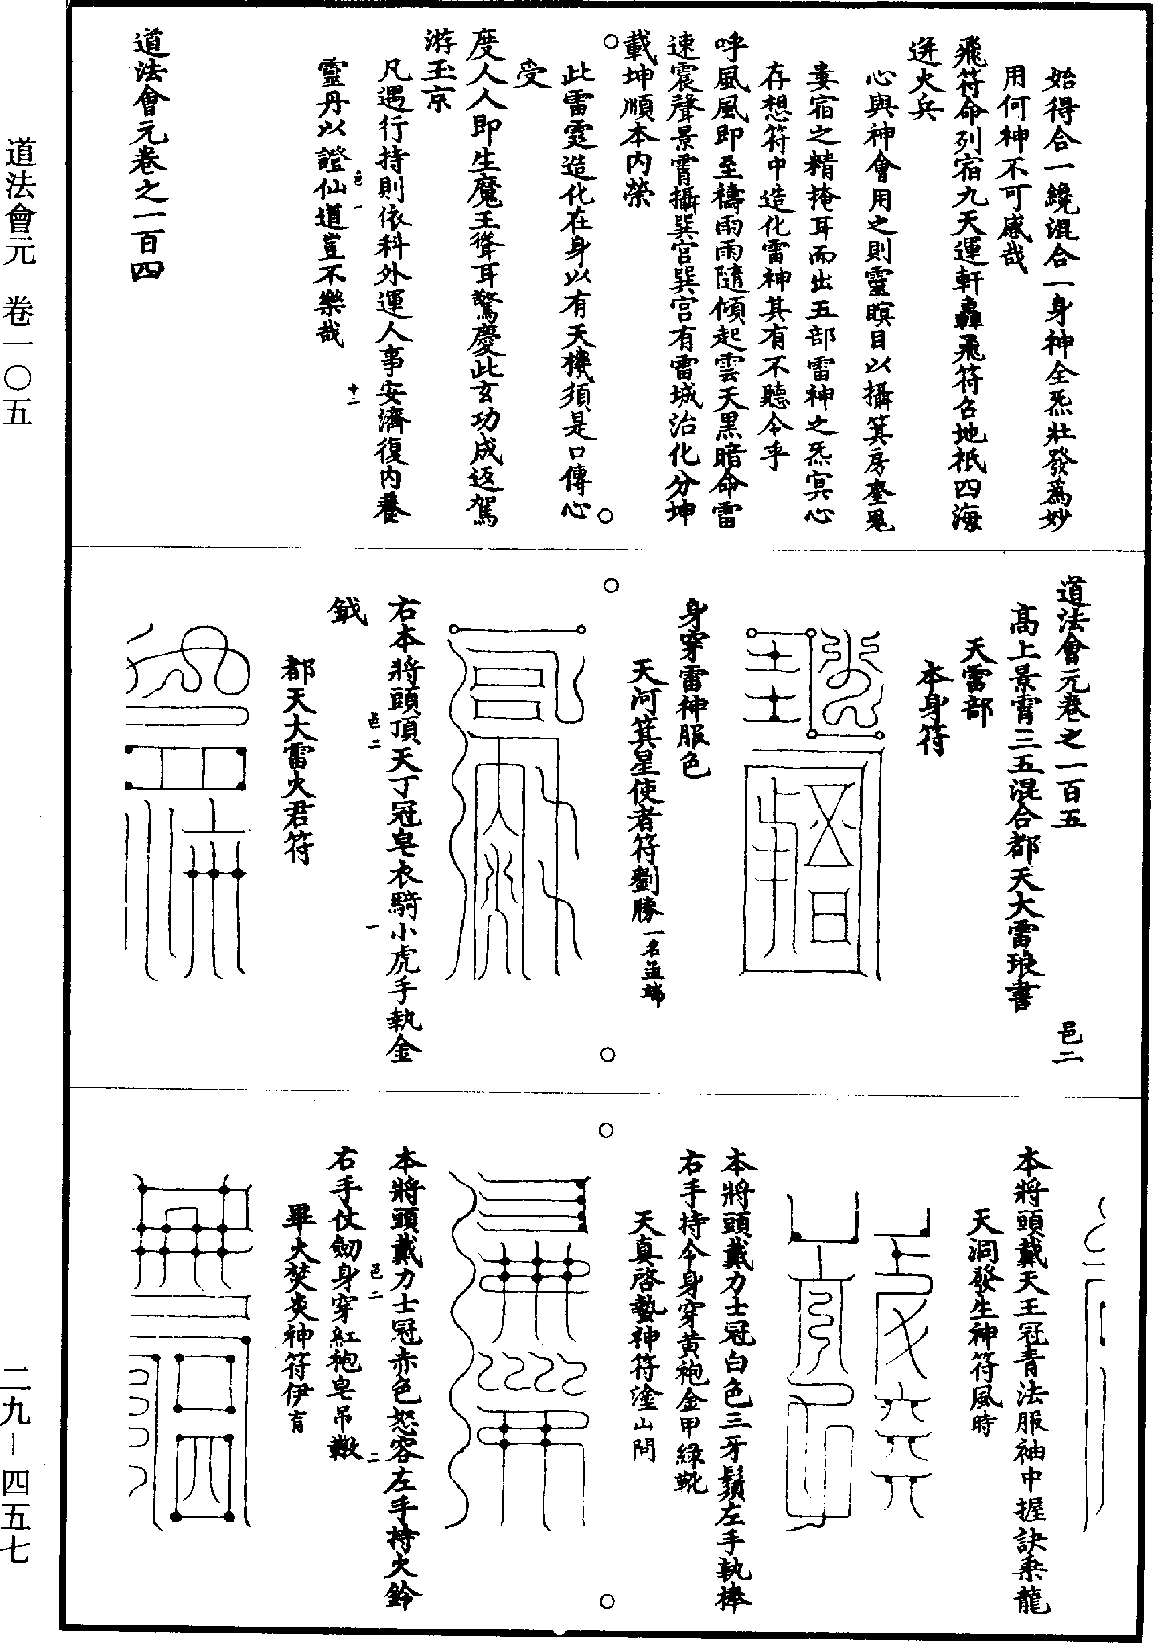 始得合一纔混合一身神全炁壯發爲妙
用何神不可感哉
飛符命列宿九天運軒轟飛符召地祇四海
迸火兵
心與神會用之則靈瞑目以攝箕房奎鬼
婁宿之精掩耳而出五部雷神之炁冥心
存想符中造化雷神其有不聽令乎
呼風風即至禱雨雨隨傾起雲天黑暗命雷
速震聲景霄攝巽宮巽宮有雷城治化分坤
載坤順本内榮
此雷霆造化在身以有天機須是口傳心
受
度人人即生魔王聳耳驚慶此玄功成返駕
游玉京
凡遇行持則依科外運人事安濟復内養
靈丹以證仙道豈不樂哉
邑一
十二
道法會元卷之一百四
道法會元卷之一百五
邑二
高上景霄三五混合都天大雷琅書
天雷部
本身符
身穿雷神服色
天河箕星使者符劉勝一名孟端
右本將頭頂天丁冠皂衣騎小虎手執金
鉞
邑二
一
都天大雷火君符
本將頭戴天王冠青法服袖中握訣乘龍
天洞發生神符風時
本將頭戴力士冠白色三牙鬚左手執棒
右手持令身穿黄袍金甲綠靴
天真啓蟄神符塗山問
本將頭戴力士冠赤色怒容左手持火鈴
右手仗劒身穿紅袍皂吊墩
邑二
二
畢火焚炎神符伊育
道法會元 卷一〇五
二九—四五七